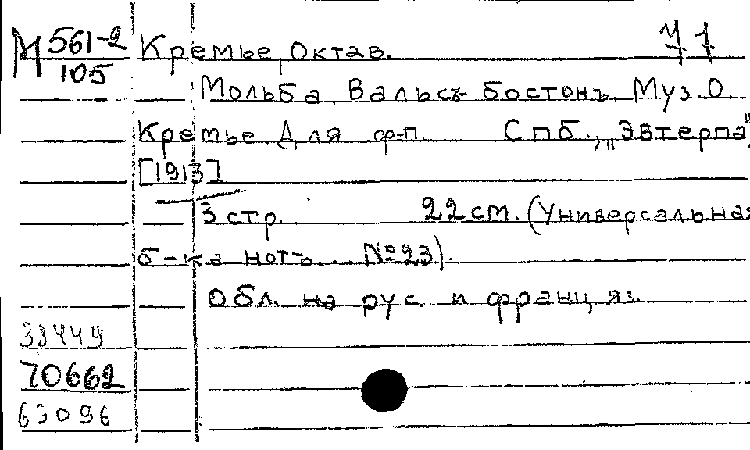 М 561-2/105 Кремье, Октав. Ч 1
Мольба. Вальсъ-бостонъ. Муз. О.
Кремье. Для ф-п. Спб., „Эвтерпа",
[1913]
3 стр. 22 см. (Универсальная
б-ка нотъ... №23).
Обл. на рус. и франц. яз.
33449
70662
63096